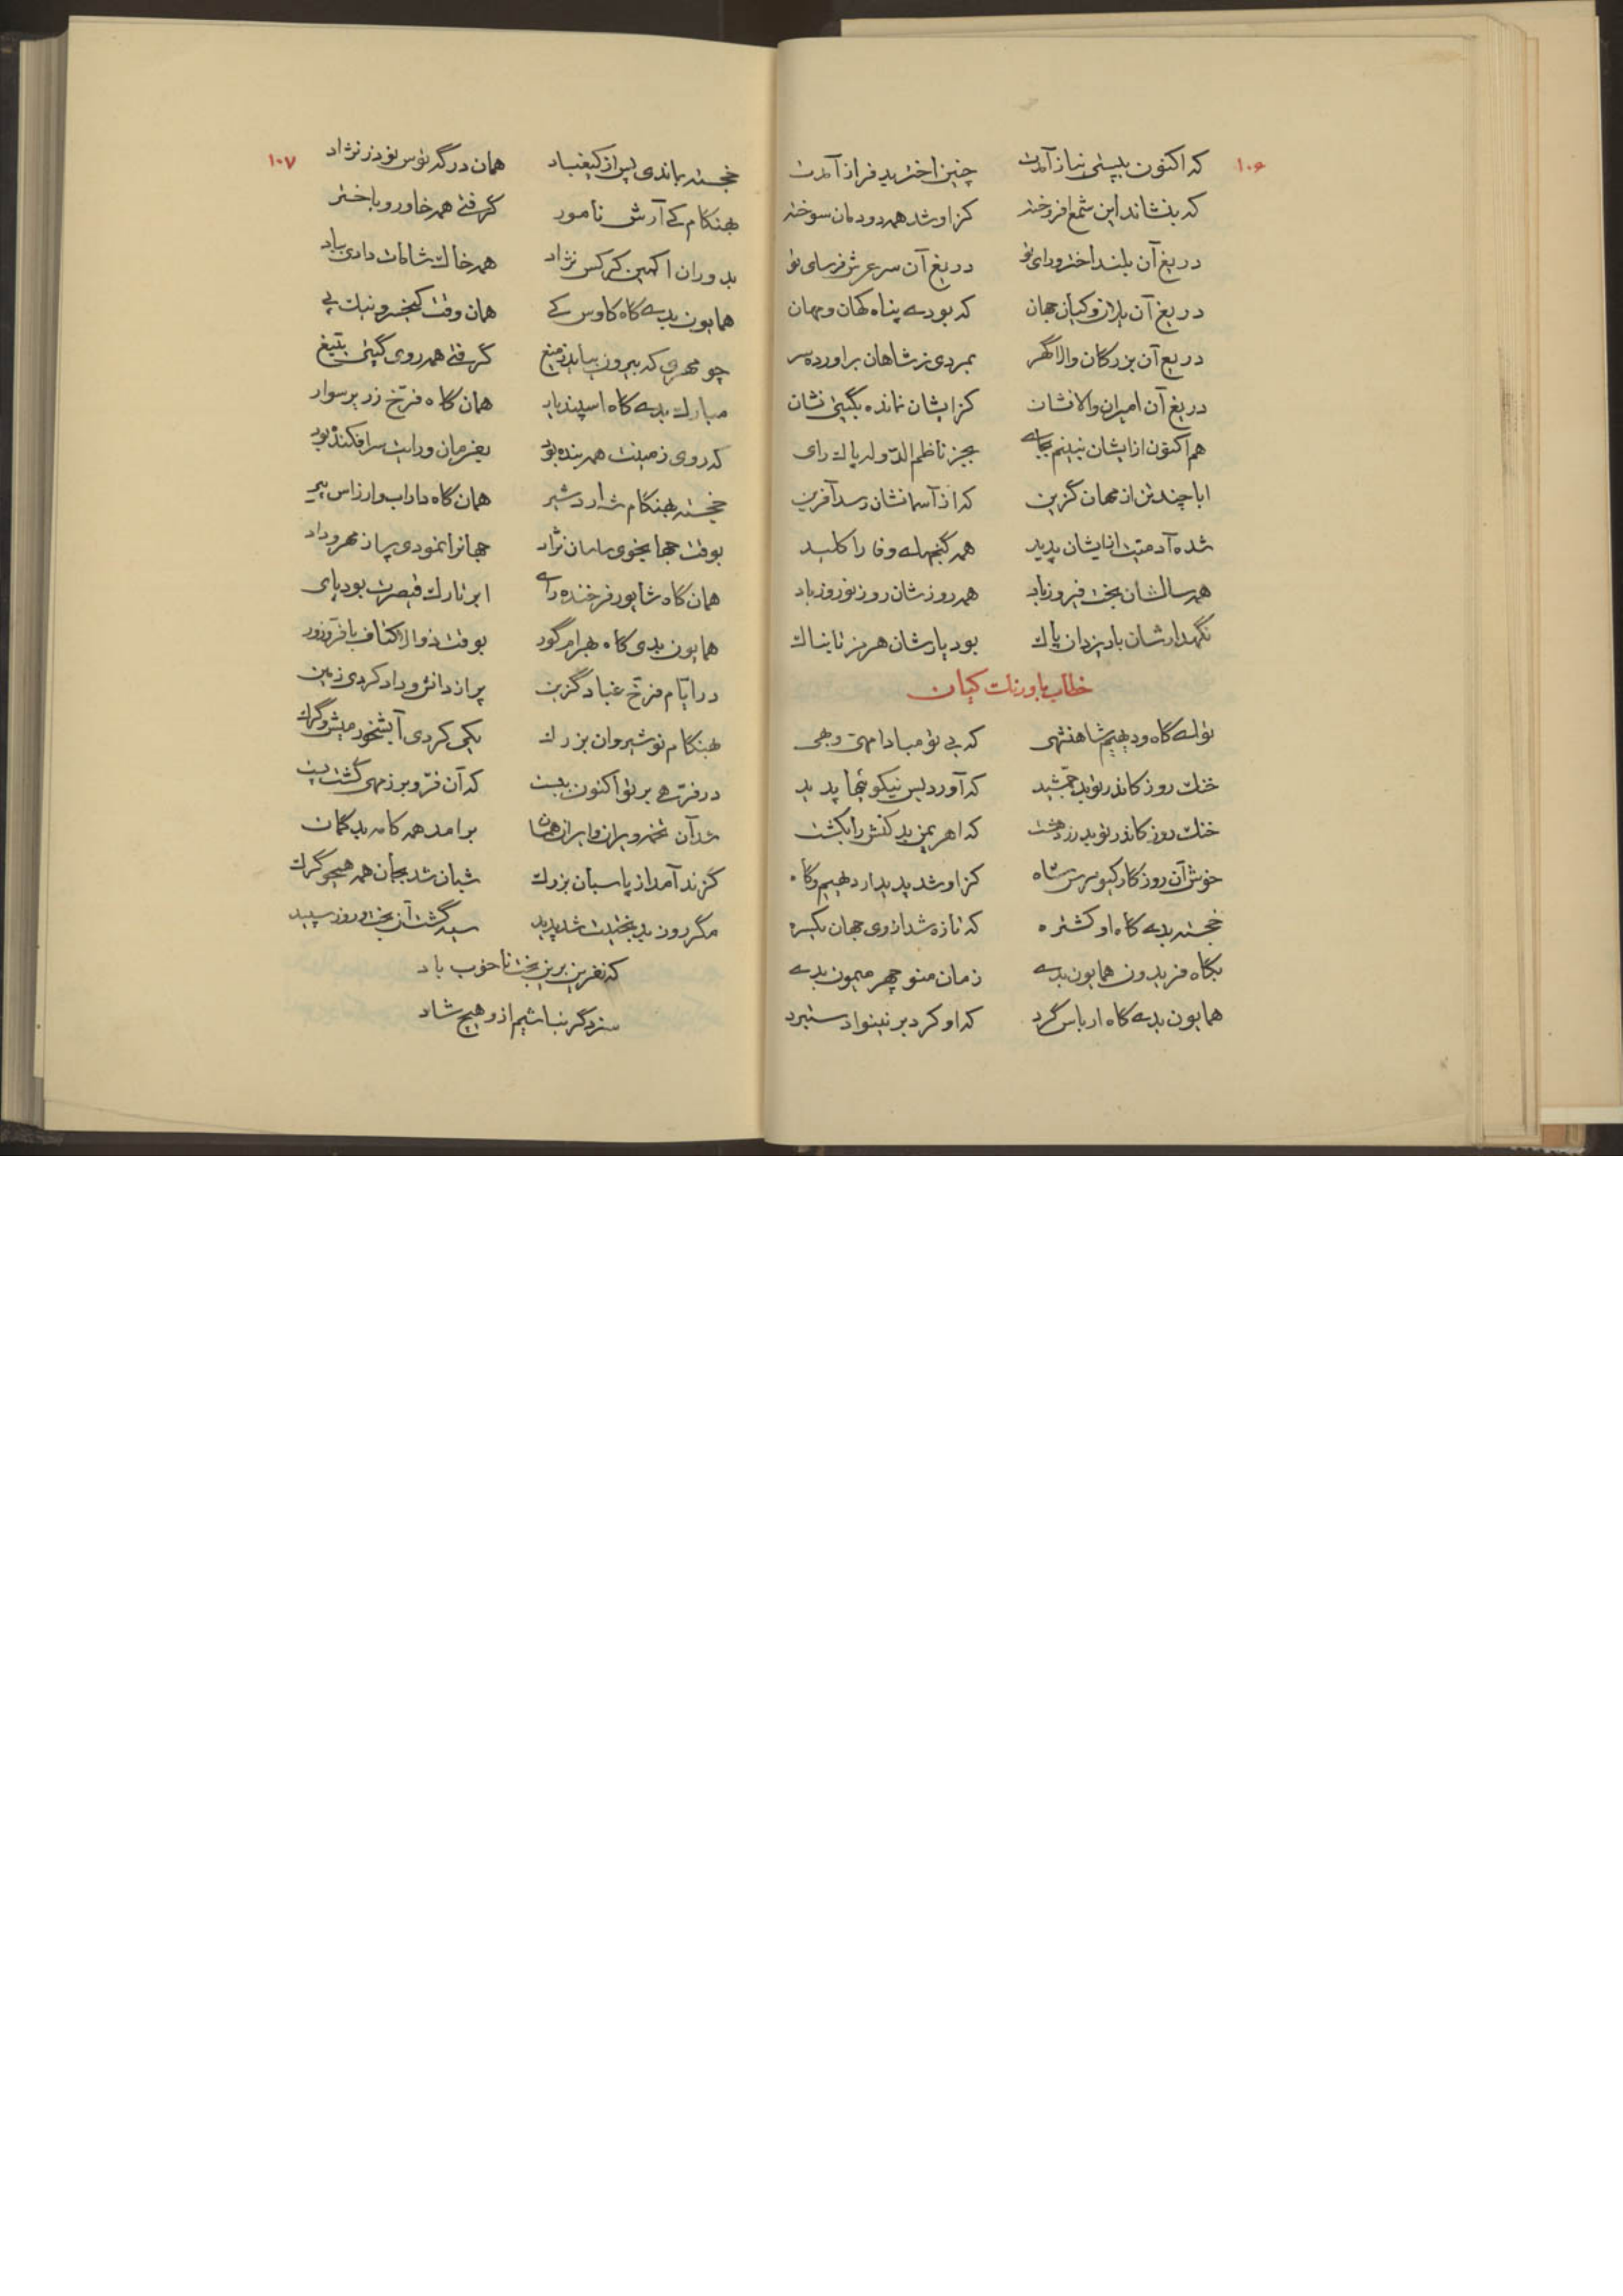 ۱۰۶
که اکنون به پستی نیاز آمدت چنین اختر بد فراز آمدت
که بنشاند این شمع افروخته کزاو شد همه دودمان سوخته
دریغ آن بلند اختر و رای تو دریغ آن سر عرش فرسای تو
دریغ آن یلان و کیان جهان که بودی پناه کهان و مهان
دریغ آن بزرگان والا گهر بمردی ز شاهان براورده سر
دریغ آن امیران والا نشان کز ایشان نمانده بگیتی نشان
هم اکنون از ایشان نبینم بجای بجز ناظم الدوله پاک رای
ابا چند تن از مهان گزین که از آسمانشان رسد آفرین
شده آدمیت از ایشان پدید همه گنجهای وفا را کلید
همه سالشان بخت فیروز باد همه روزشان روز نوروز باد
نگهدارشان باد یزدان پاک بود یارشان هرمز تابناک
خطاب باورنگ کیان
تو ای گاه و دیهیم شاهنشهی که بی تو مبادا مهی و بهی
خنک روز کاندر تو بد جمشید که آورد بس نیکوئیها پدید
خنک روز کاندر تو بد زردهشت که اهریمن بد کنش را بکشت
خوش آن روزگار کیومرس شاه کزاو شد پدیدار دیهیم و گاه
خجسته بدی گاه او کشتره که تازه شد از وی جهان یکسره
بگاه فریدون همایون بدی زمان منوچهر میمون بدی
همایون بدی گاه ارباس گرد که او کرد بر نینوا دستبرد
۱۰۷
خجسته بماندی پس از کیقباد همان درگه توس نوذر نژاد
بهنگام کی آرش نامور گرفتی همه خاور و باختر
بدوران اکمین کرکس نژاد همه خاک شامات دادی بباد
همایون بدی گاه کاوس کی همان وقت کیخسرو نیک پی
چو مهری که بیرون بیاید ز میغ گرفتی همه روی گیتی بتیغ
مبارک بدی گاه اسپندیار همان گاه فرخ زریر سوار
که روی زمینت همه بنده بود بفرمان و رایت سرافکنده بود
خجسته بهنگام شه اردشیر همان گاه داراب و ارزاس پیر
بوقت جهانجوی ساسان نژاد جهانرا نمودی پر از مهر و داد
همان گاه شاپور فرخنده رای ابر تارک قیصرت بود پای
همایون بدی گاه بهرام گور بوقت ذوالاکتاف با فر و زور
در ایام فرخ غباد گزین پر از دانش و داد کردی زمین
بهنگام نوشیروان بزرگ یکی کردی آبشخور میش و گرگ
در فرّهی بر تو اکنون ببست که آن فرّ و برز مهی گشت پست
شد آن تخمه ویران و ایران همان برامد همه کامه بدگمان
گزند آمد از پاسبان بزرگ شبان شد بجان همه همچو گرگ
مگر روز بدبختیت شد پدید سیه گشت آن بخت و روز سپید
که نفرین برین بخت ناخوب باد
سزد گر نباشیم از و هیچ شاد